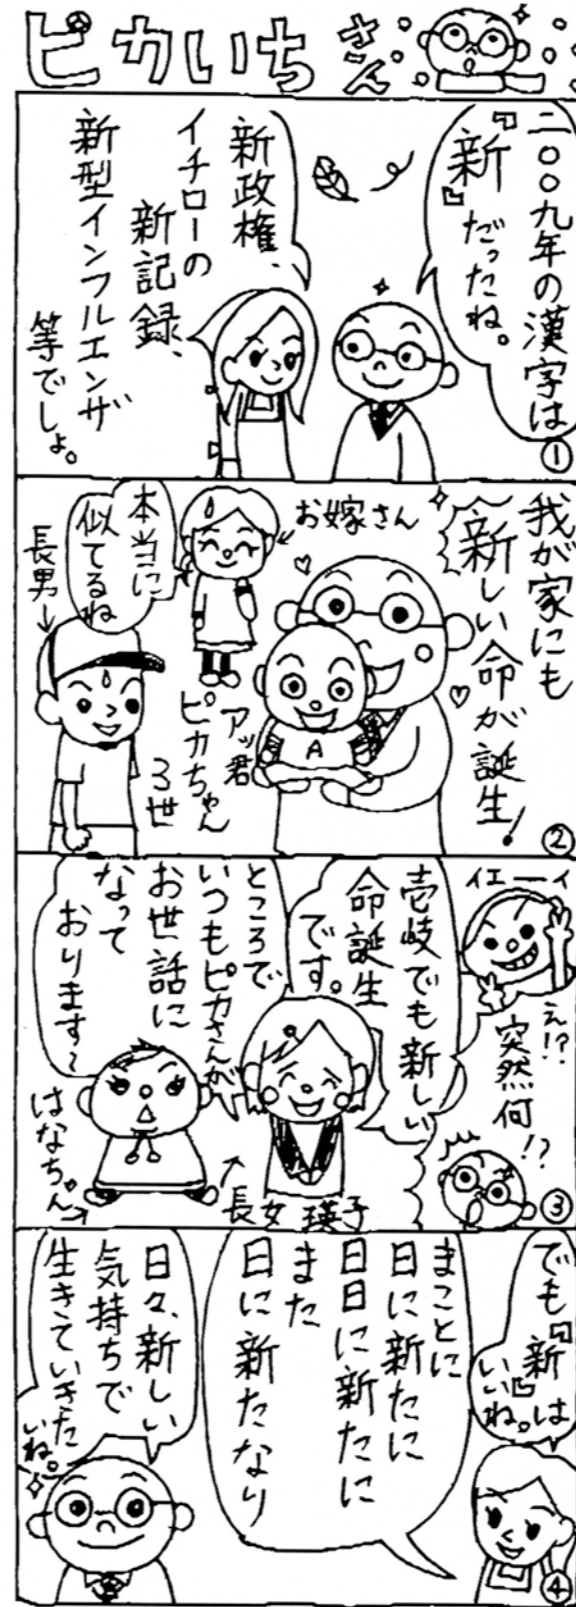 ピカいちさん
二〇〇九年の漢字は
『新』だったね。
新政権、
イチローの
新記録、
新型インフルエンザ
等でしょ。
①
我が家にも
新しい命が誕生!
お嫁さん
本当に
似てるね
長男
アッ君
ピカちゃん
3世
A
②
イエーイ
え!?
突然何!?
壱岐でも新しい
命誕生
です。
ところで
いつもピカさんが
お世話に
なって
おります~
長女 瑛子
はなちゃん
③
でも『新』は
いいね。
まことに
日に新たに
日日に新たに
また
日に新たなり
日々、新しい
気持ちで
生きていきた
いね。
④